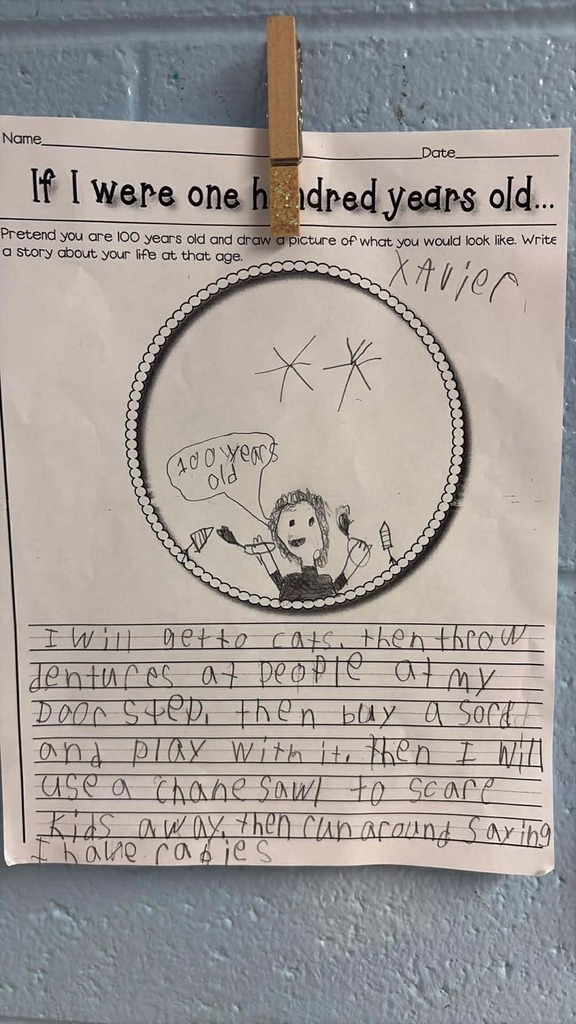 Name Date
If I were one hundred years old...
Pretend you are 100 years old and draw a picture of what you would look like. Write
a story about your life at that age.
XAvier
100 years
old
I will get to cats. then throw
dentures at people at my
Door step. then buy a sord
and play with it. then I will
use a chane sawl to scare
kids away. then run around saying
I have rabies